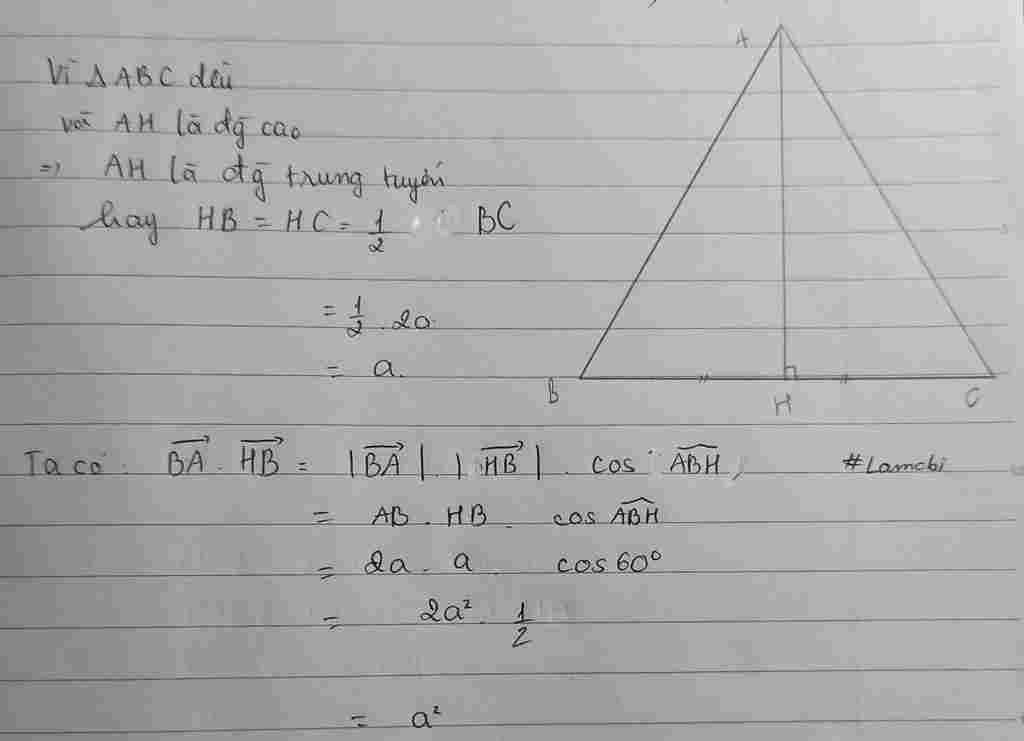 Vì ΔABC đều
với AH là đg cao
=> AH là đg trung tuyến
hay HB = HC = 1/2 BC
= 1/2 . 2a
= a.
A
B
H
C
Ta có: \overrightarrow{BA} . \overrightarrow{HB} = |\overrightarrow{BA}| . |\overrightarrow{HB}| . cos \widehat{ABH}
#Lamchi
= AB . HB . cos \widehat{ABH}
= 2a . a cos 60°
= 2a² . 1/2
= a²